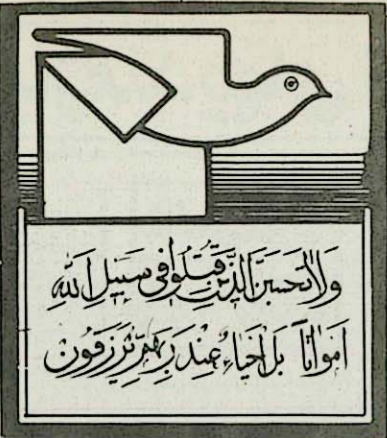 وَلَا تَحْسَبَنَّ الَّذِينَ قُتِلُوا فِي سَبِيلِ اللهِ
اَمْوَاتًا بَلْ اَحْيَاءٌ عِنْدَ رَبِّهِمْ يُرْزَقُونَ